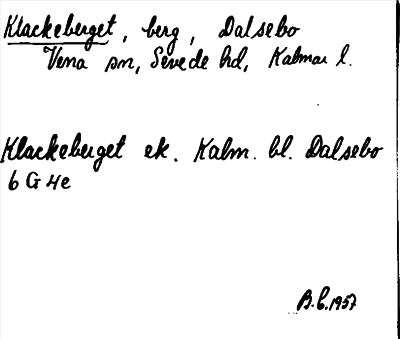 Klackeberget, berg, Dalsebo
Vena sn, Sevede hd, Kalmar l.
Klackeberget ek. Kalm. bl. Dalsebo
6 G 4e
B.C. 1957